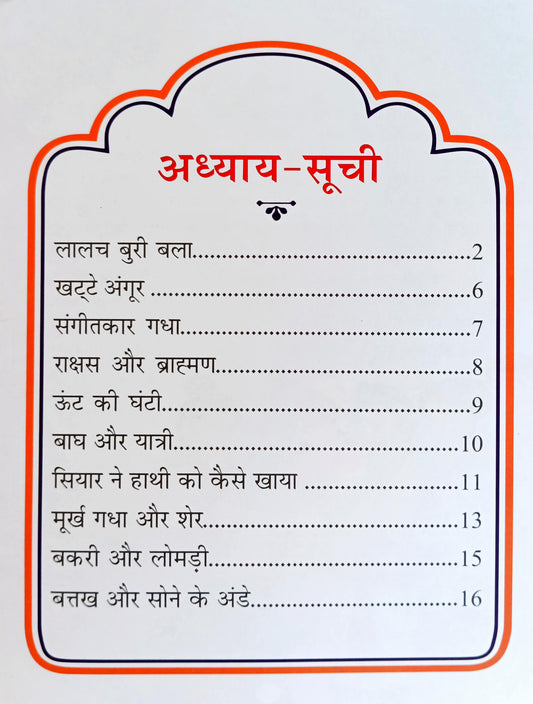 अध्याय-सूची
लालच बुरी बला........................................................2
खट्टे अंगूर ................................................................6
संगीतकार गधा..........................................................7
राक्षस और ब्राह्मण..................................................8
ऊंट की घंटी.............................................................9
बाघ और यात्री.........................................................10
सियार ने हाथी को कैसे खाया ..............................11
मूर्ख गधा और शेर..................................................13
बकरी और लोमड़ी.................................................15
बत्तख और सोने के अंडे.........................................16